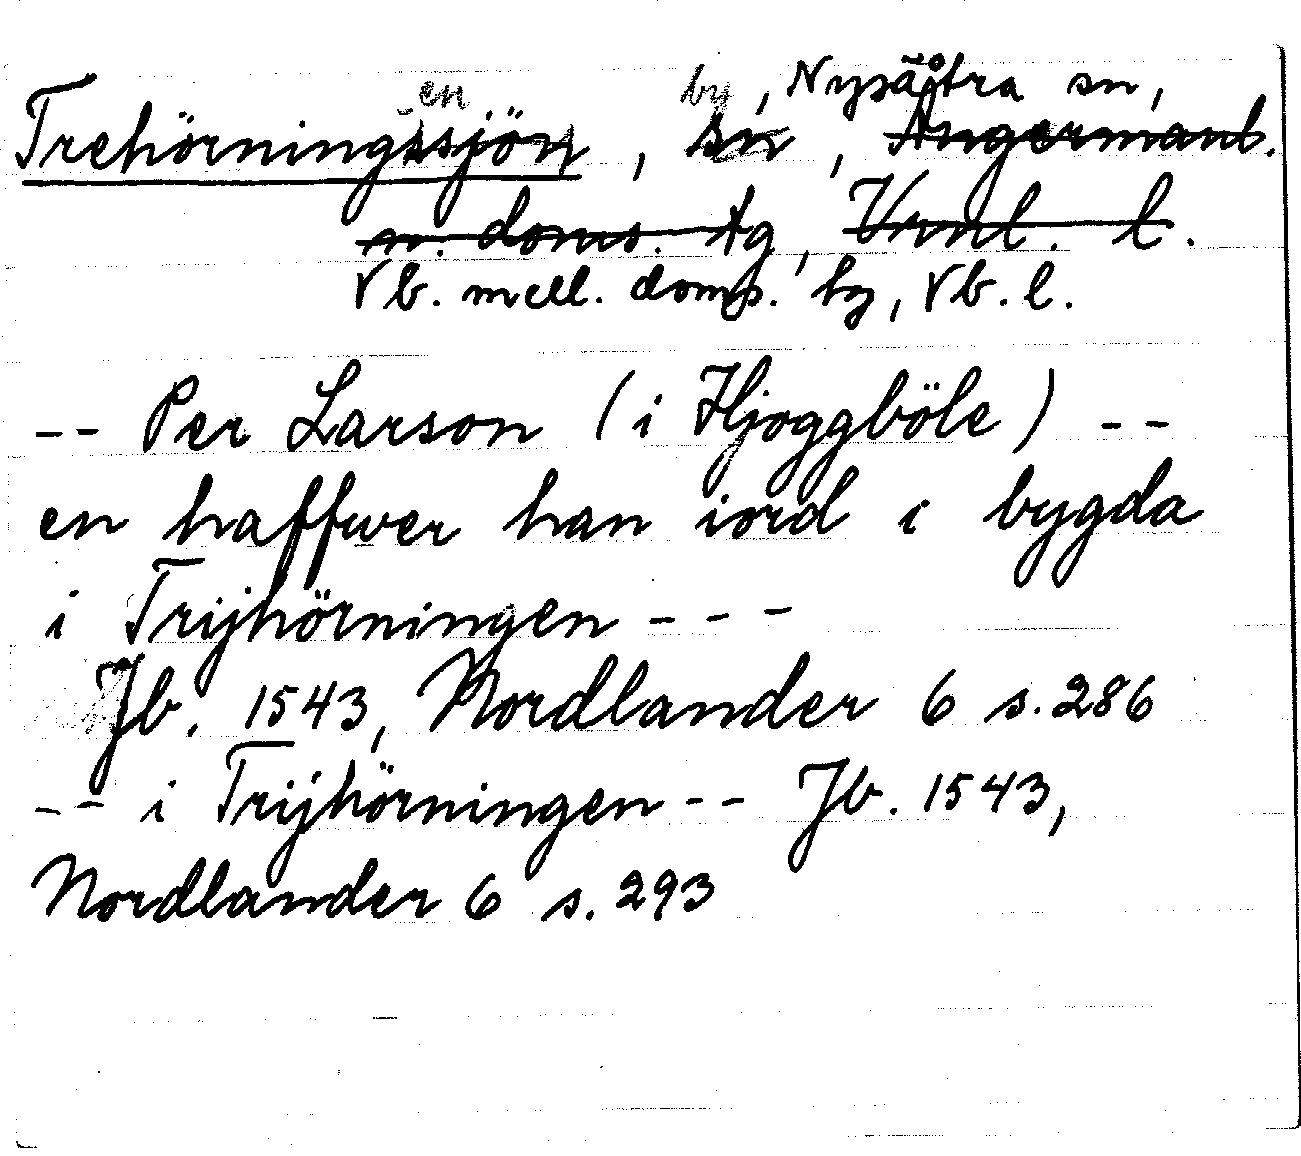 en by, Nysätra sn,
Trehörningssjön, sn, Ångermanl.
n. doms. tg, Vrnl. l.
Vb. mell. doms. hg, Vb. l.
-- Per Larson (i Hjoggböle) --
en haffwer han iord i bygda
i Trijhörningen ---
Jb. 1543, Nordlander 6 s. 286
-- i Trijhörningen -- Jb. 1543,
Nordlander 6 s. 293